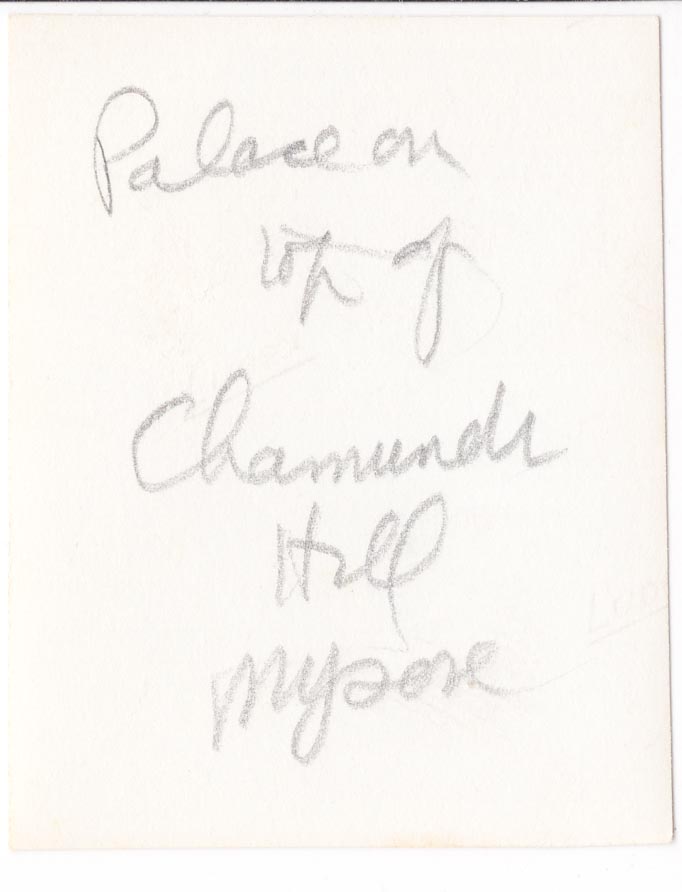 Palace on
top of
Chamundi
Hill
Mysore